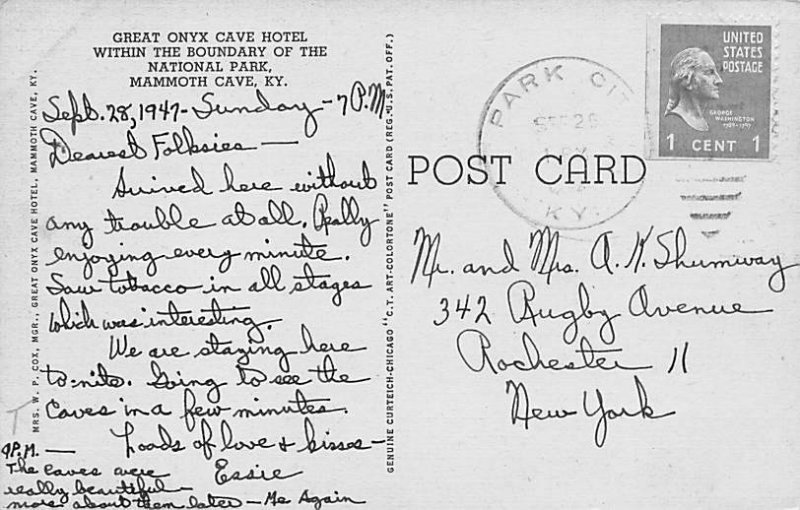 GREAT ONYX CAVE HOTEL
WITHIN THE BOUNDARY OF THE
NATIONAL PARK,
MAMMOTH CAVE, KY.
Sept. 28, 1947 - Sunday - 7 P.M.
Dearest Folksies —
Arrived here without
any trouble at all. Really
enjoying every minute.
Saw tobacco in all stages
which was interesting.
We are staying here
to-nite. Going to see the
Caves in a few minutes.
Loads of love & kisses -
Essie
9 P.M. —
The caves were
really beautiful -
more about them later - Me Again
MRS. W. P. COX, MGR., GREAT ONYX CAVE HOTEL, MAMMOTH CAVE, KY.
GENUINE CURTEICH-CHICAGO "C.T. ART-COLORTONE" POST CARD (REG. U.S. PAT. OFF.)
POST CARD
PARK CIT
SEP 28
KY.
UNITED
STATES
POSTAGE
GEORGE
WASHINGTON
1789-1797
1 CENT 1
Mr. and Mrs. A. K. Shumway
342 Rugby Avenue
Rochester 11
New York